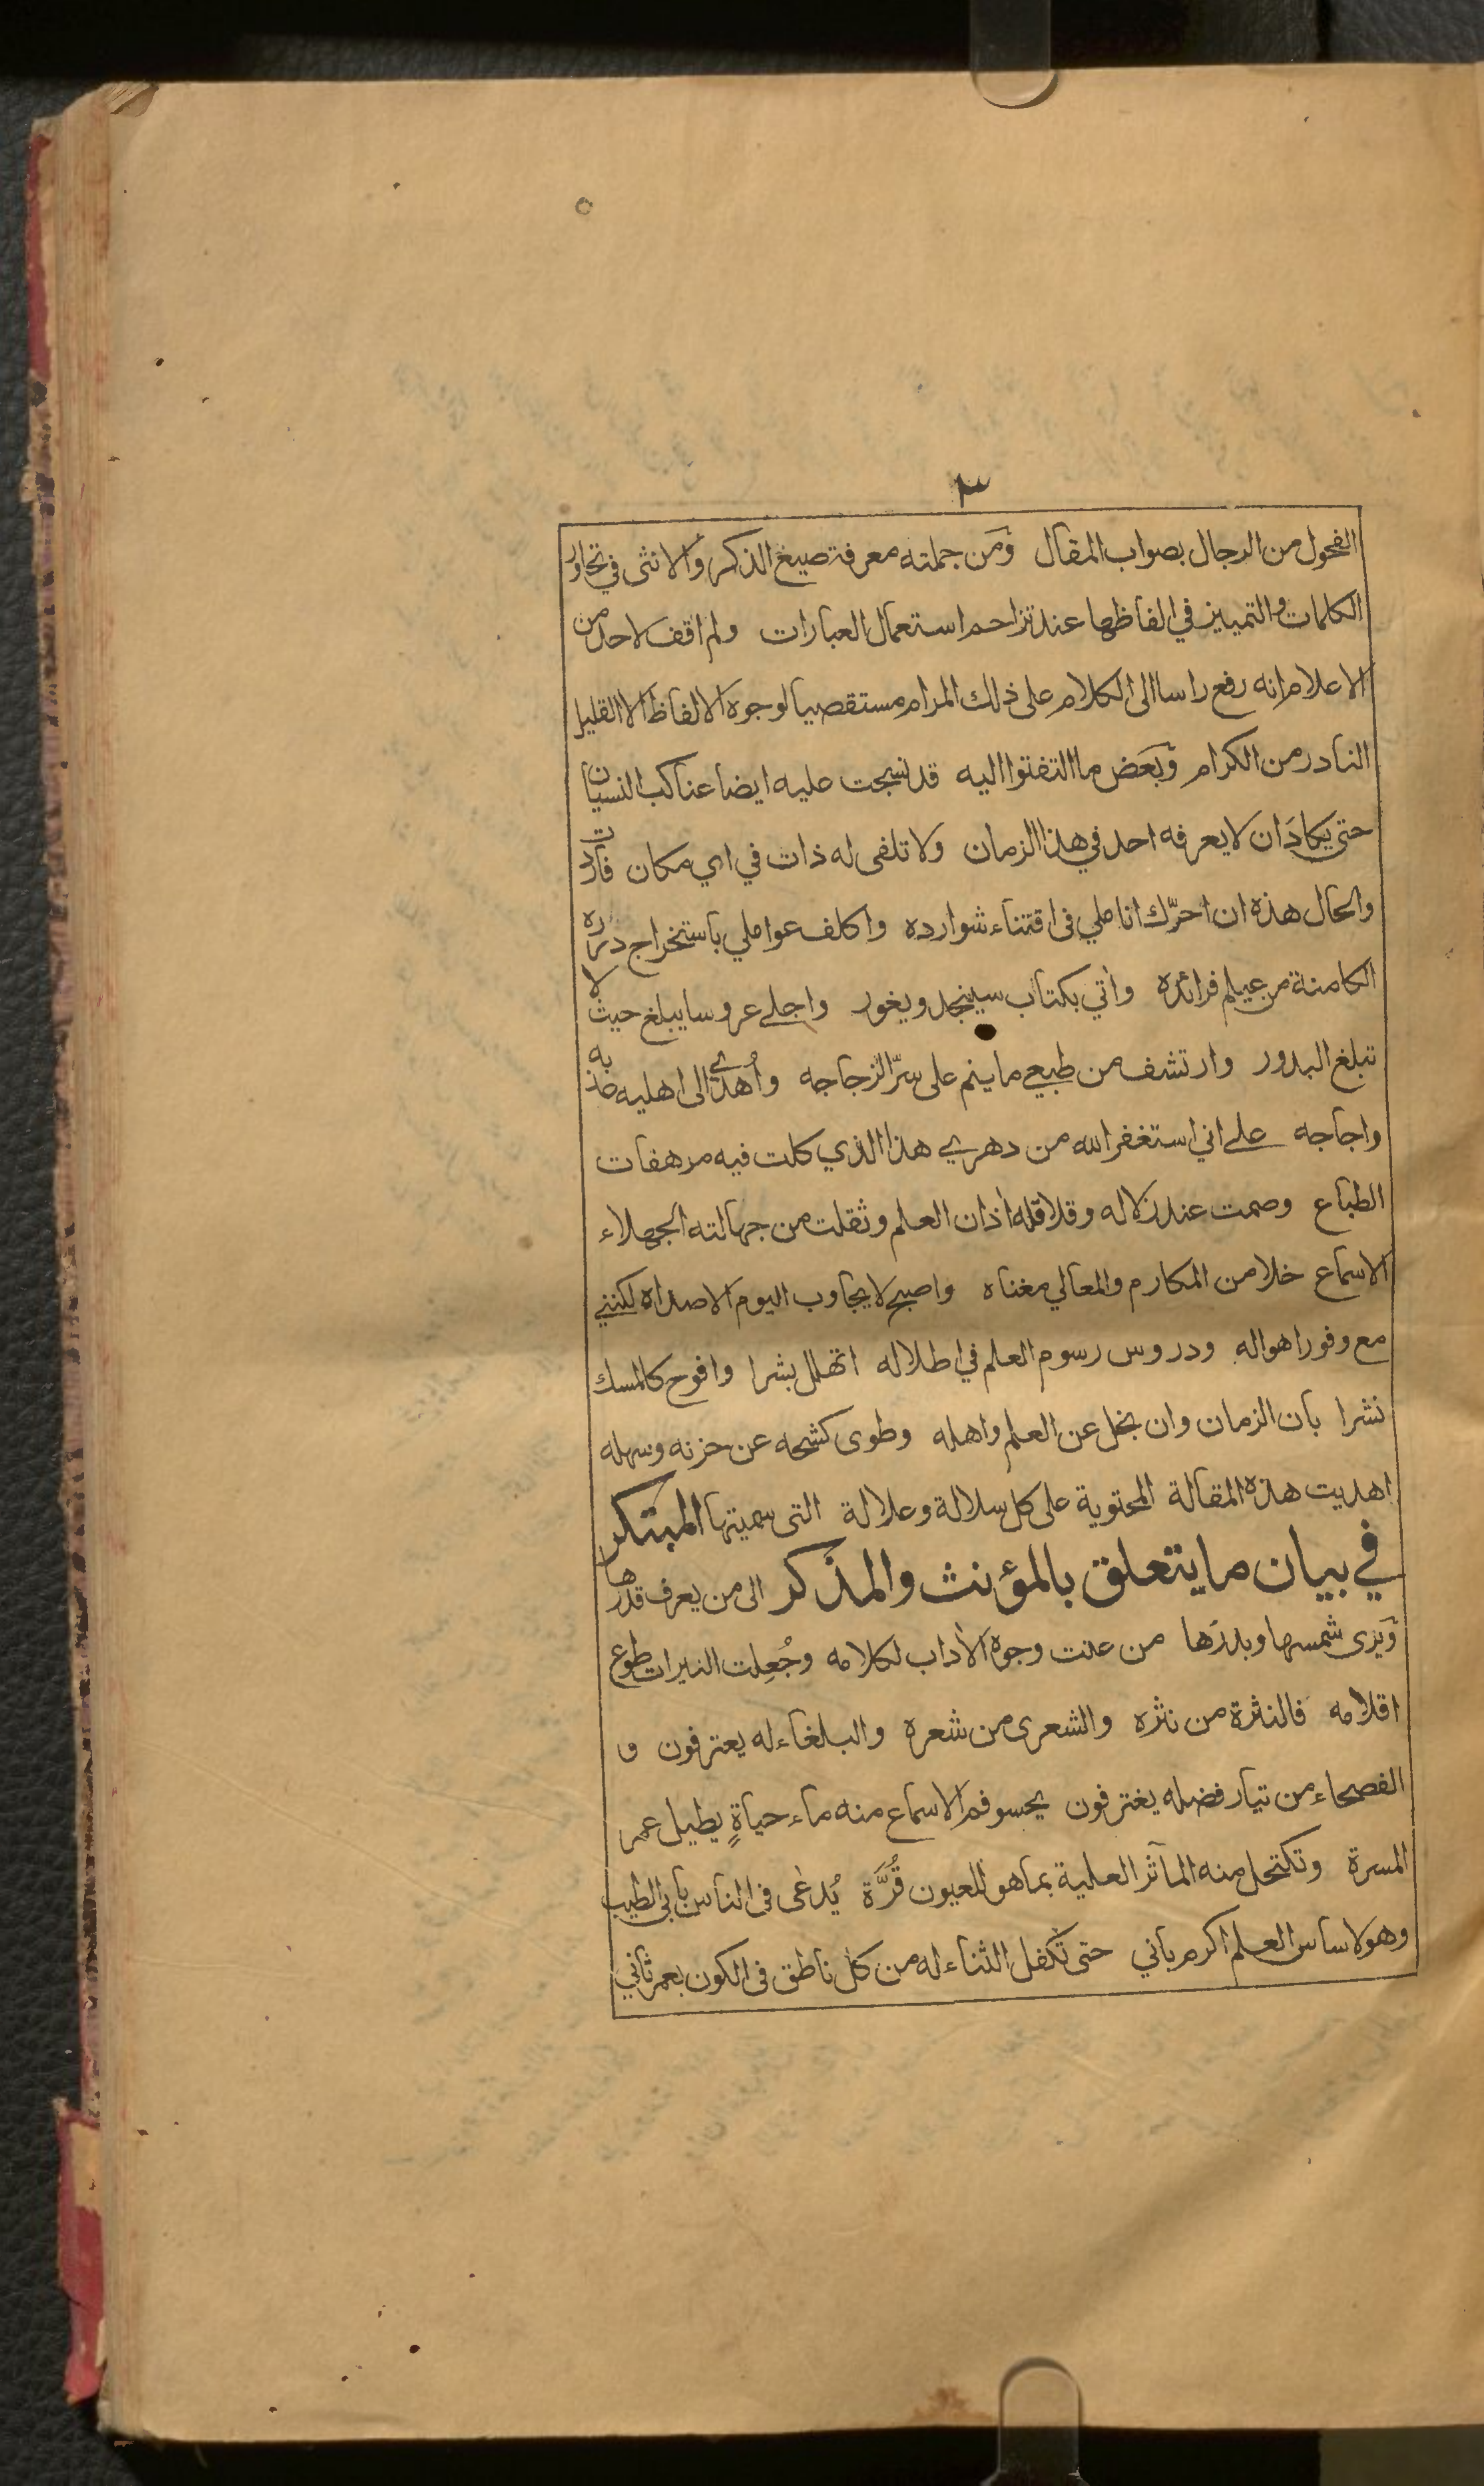 ٣
الفحول من الرجال بصواب المقال ومن جملته معرفة صيغ الذكر والانثى في تحاور
الكلمات والتمييز في الفاظها عند تزاحم استعمال العبارات ولم اقف لاحد من
الاعلام انه رفع راسا الى الكلام على ذلك المرام مستقصيا لوجوه الالفاظ الا القليل
النادر من الكرام وبعض ما التفتوا اليه قد نسجت عليه ايضا عناكب النسيان
حتى يكاد ان لا يعرفه احد في هذا الزمان ولا تلفى له ذات في اي مكان فاردت
والحال هذه ان احرّك اناملي فى اقتناء شوارده واكلف عواملي باستخراج درره
الكامنة من عيلم فرائده واتي بكتاب سينجد ويغور واجلي عروسا يبلغ حيث لا
تبلغ البدور وارتشف من طبعي ما ينم على سرّ الزجاجه واُهدي الى اهليه عذبه
واجاجه على اني استغفر الله من دهري هذا الذي كلت فيه مرهفات
الطباع وصمت عند زلاله وقلاقله اذان العلم وثقلت من جهالته الجهلاء
الاسماع خلا من المكارم والمعالي مغناه واصبح لا يجاوب اليوم الا صداه لكنني
مع وفور اهواله ودروس رسوم العلم في اطلاله اتهلل بشرا وافوح كالمسك
نشرا بان الزمان وان بخل عن العلم واهله وطوى كشحه عن حزنه وسهله
اهديت هذه المقالة المحتوية على كل سلالة وعلالة التى سميتها المبتكر
في بيان ما يتعلق بالمؤنث والمذكر الى من يعرف قدرها
ويرى شمسها وبدرها من عنت وجوه الاداب لكلامه وجُعِلت النيرات طوع
اقلامه فالنثرة من نثره والشعرى من شعره والبلغاء له يعترفون و
الفصحاء من تيار فضله يغترفون يحسو فم الاسماع منه ماء حياةٍ يطيل عمر
المسرة وتكتحل منه المآثر العلية بما هو للعيون قُرَّة يُدعٰى فى الناس بابي الطيب
وهو لاساس العلم اكرم باني حتى تكفل الثناء له من كل ناطق فى الكون بعمر ثاني